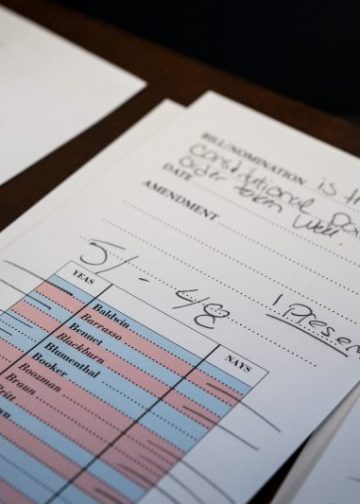 BILL/NOMINATION is th
Constitutional Poi
DATE order taken well.
AMENDMENT
51 - 48 1 Presen
YEAS NAYS
Baldwin
Barrasso
Bennet
Blackburn
Blumenthal
Booker
Boozman
Braun
Britt
wn